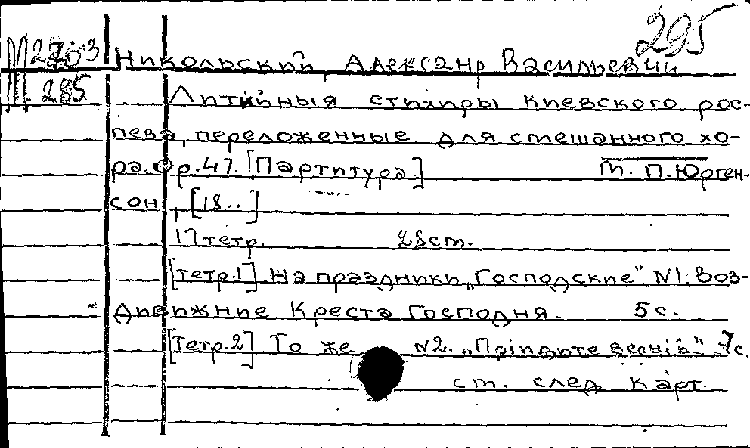 295
Никольский, Александр Васильевич
285
Литийныя стихиры Киевского рос-
пева, переложенные для смешанного хо-
ра. Ор. 47. [Партитура] М. П. Юрген-
сон, [18..]
17 тетр. 28 ст.
[Тетр.1] На праздники „Господские" N1. Воз-
движние Креста Господня. 5 с.
[Тетр.2] То же N2. „Прiидите 7 с.
ст. след карт